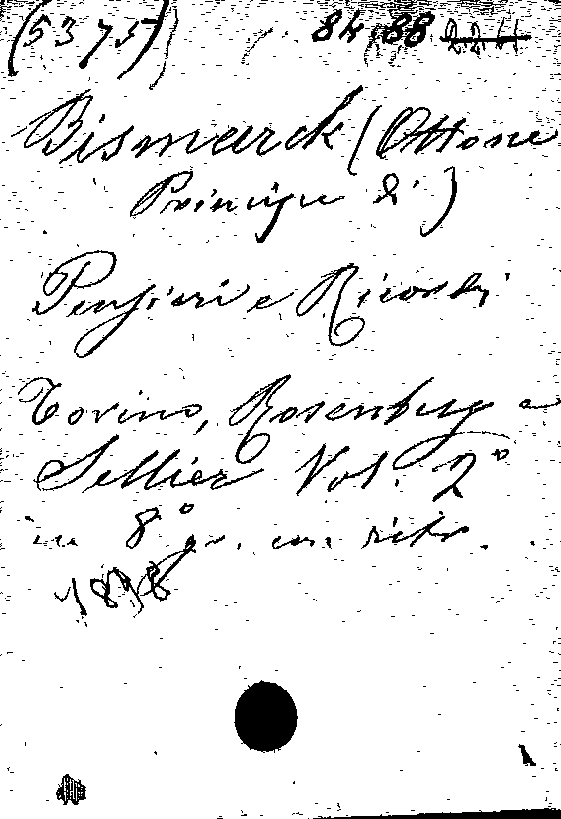 (5375) 84,88 2.2.H
Bismarck (Ottone
Principe di)
Pensieri e Ricordi
Torino, Rosenberg e
Sellier Vol. 2°
in 8° gr. con ritr.
1898